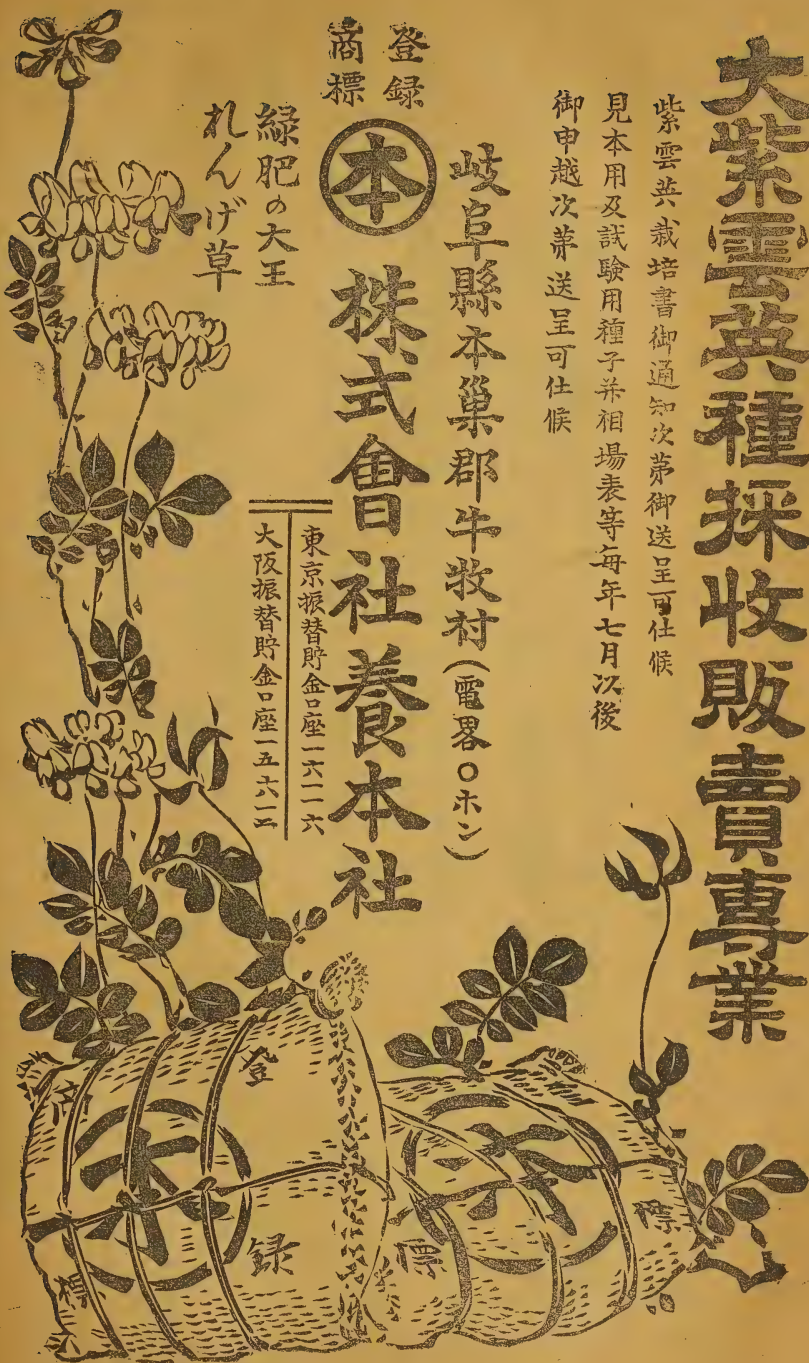 大紫雲英種採收販賣専業
紫雲英栽培書御通知次第御送呈可仕候
見本用及試驗用種子并相場表等每年七月以後
御申越次第送呈可仕候
岐阜縣本巢郡牛牧村(電畧〇ホン)
登録
商標
本
株式會社養本社
東京振替貯金口座一六一一六
大阪振替貯金口座一五六一二
緑肥の大王
れんげ草
登録
商標
本
本
標
標